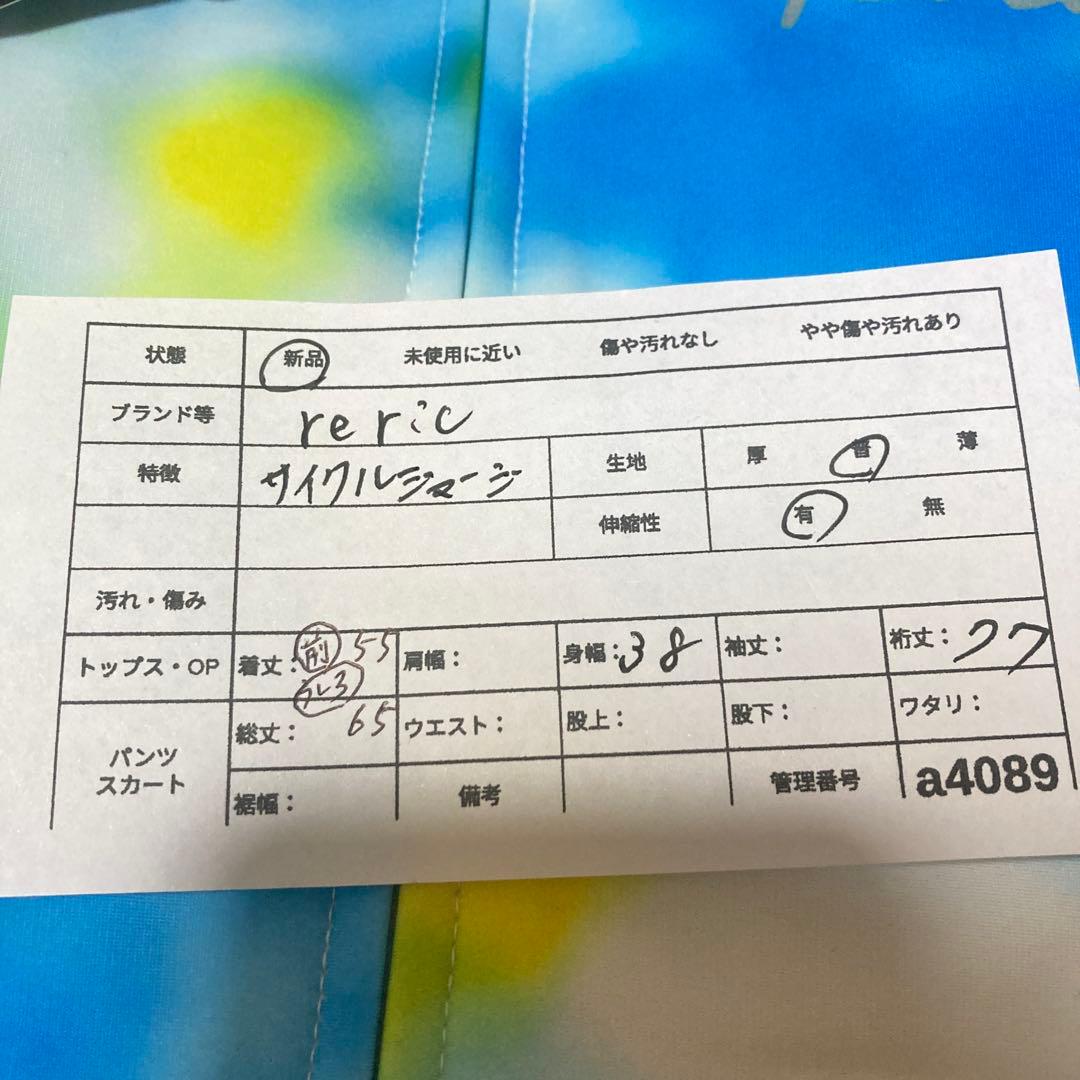 状態 新品 未使用に近い 傷や汚れなし やや傷や汚れあり
ブランド等 reric
特徴 サイクルジャージ 生地 厚 普 薄
伸縮性 有 無
汚れ・傷み
トップス・OP 着丈：前 55 肩幅： 身幅：38 袖丈： 裄丈：77
うしろ 65
パンツ スカート 総丈： ウエスト： 股上： 股下： ワタリ：
裾幅： 備考 管理番号 a4089